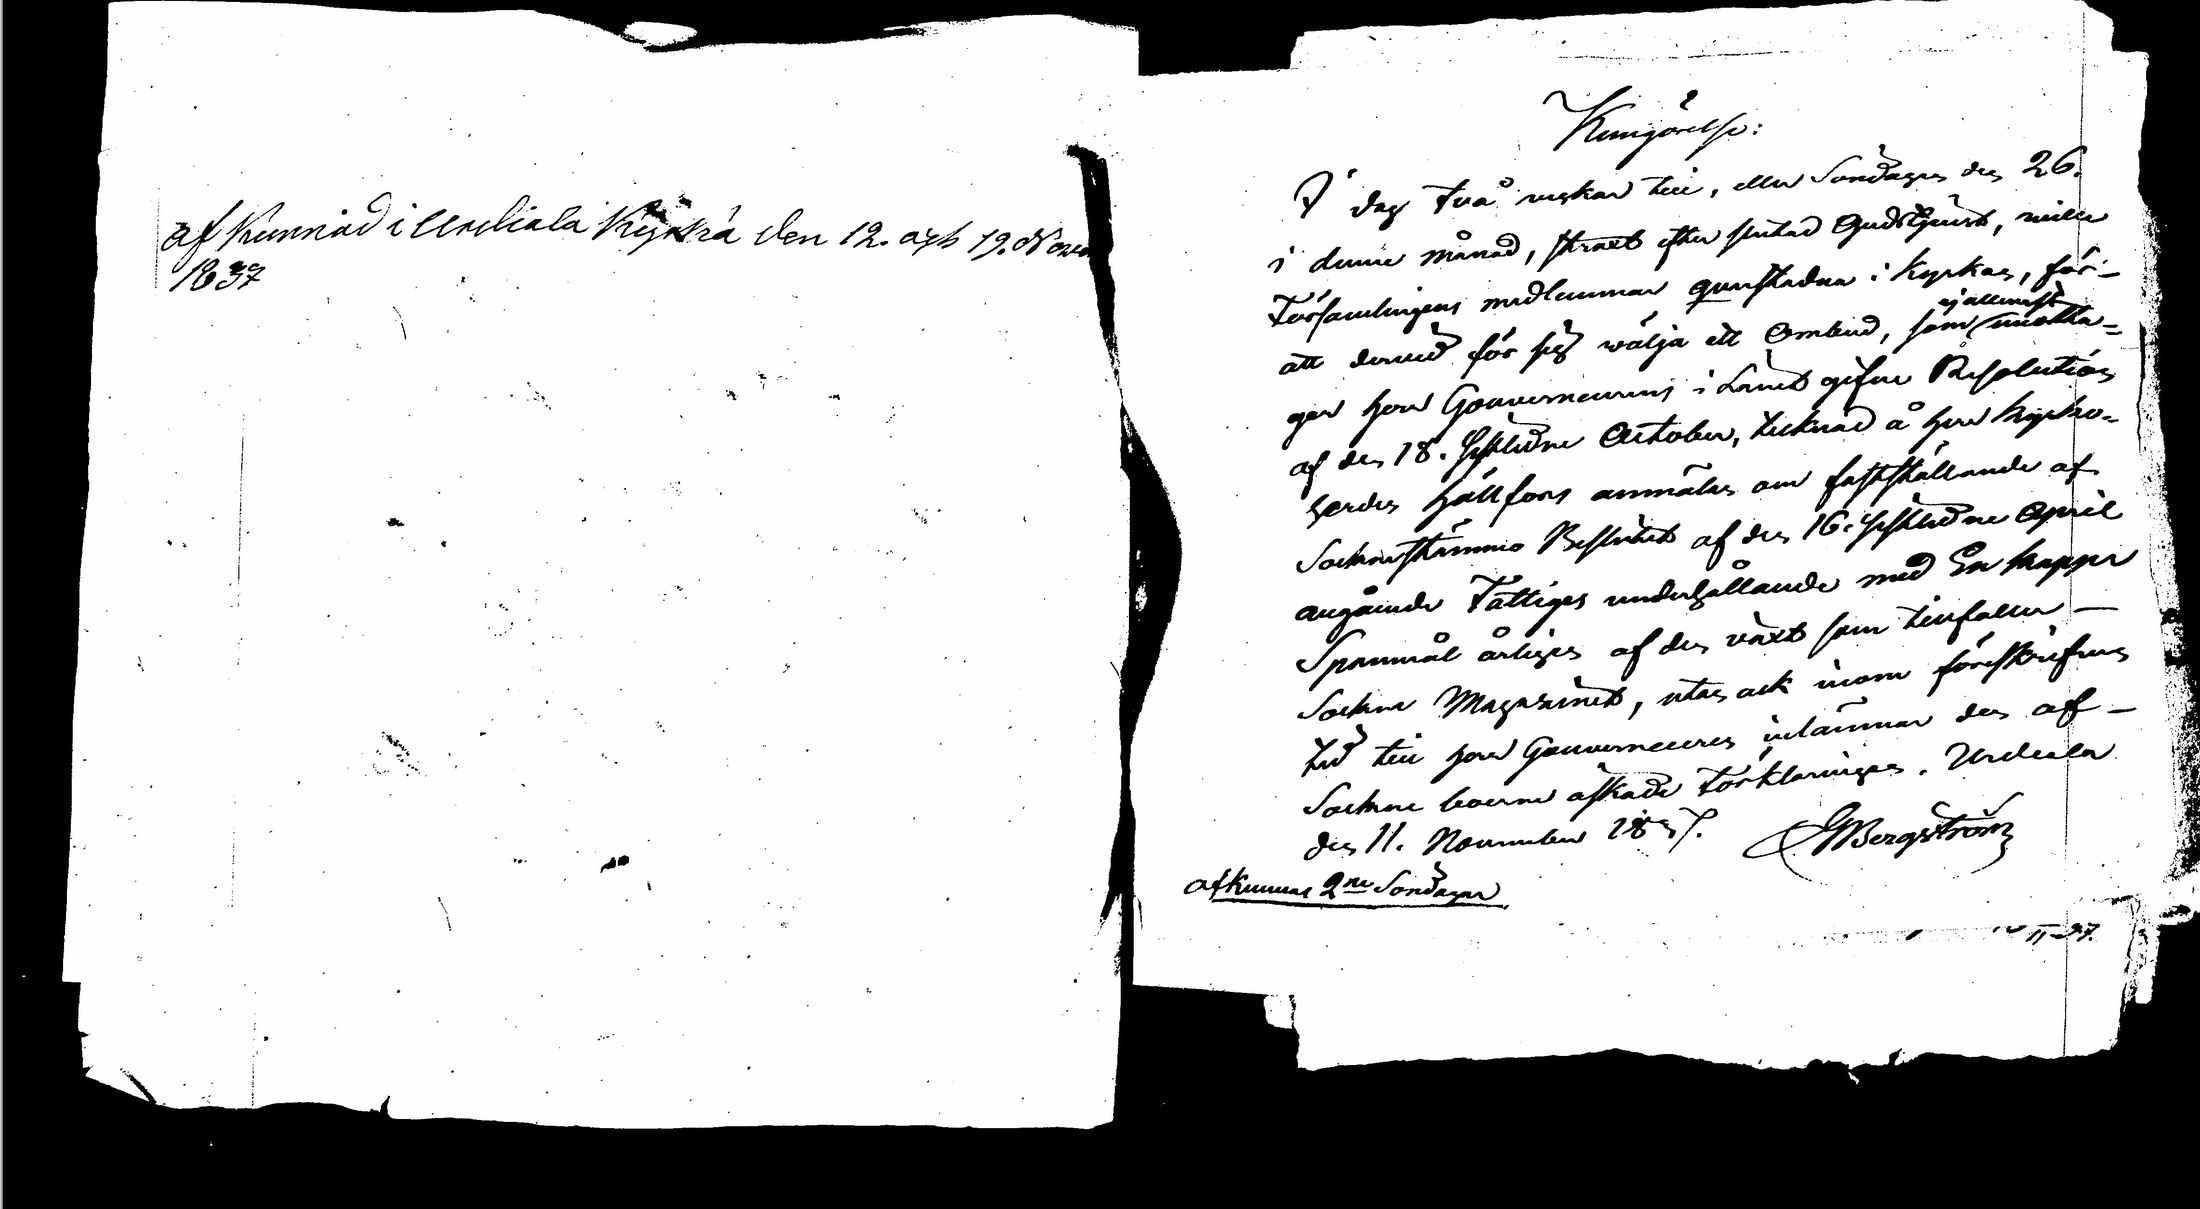 af Kunnad i Urdiala Kyrka den 12. och 19. Novem
1837
Kungörelse:
I dag två veckor till, eller Söndagen den 26.
i denne månad, straxt efter slutad Gudstjenst, wille
Församlingens medlemmar qvarstadna i Kyrkan, för
att derwid för sig wälja ett Ombud, som ej allenast emotta=
ger Herr Gouverneurens i Länet gifne Resolution
af den 18. sistledne October, tecknad å Herr Kyrko=
herden Hällfors anmälan om fastställande af
Sockne stämmo Beslutet af den 16. sistledne April
angående Fattiges underhållande med En kappa
Spanmål årligen af den växt som tillfaller
Sockne Magasinet, utan ock inom föreskrifven
tid till Herr Gouverneuren inlämnar den af
Sockne boerne äskade Förklaringen. Urdiala
den 11. November 1837. Bergström
afkunnas 2ne Söndagar